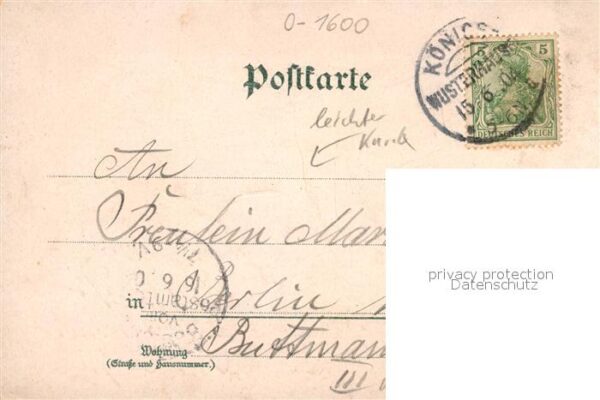 0-1600
Postkarte
KÖNIGS
WUSTERHAUSEN
15 6
5 5
DEUTSCHES REICH
leichter
Knick
An
Fräulein Mar
in Berlin
16 6
Buttman
Wohnung
(Straße und Hausnummer.)
III
privacy protection
Datenschutz